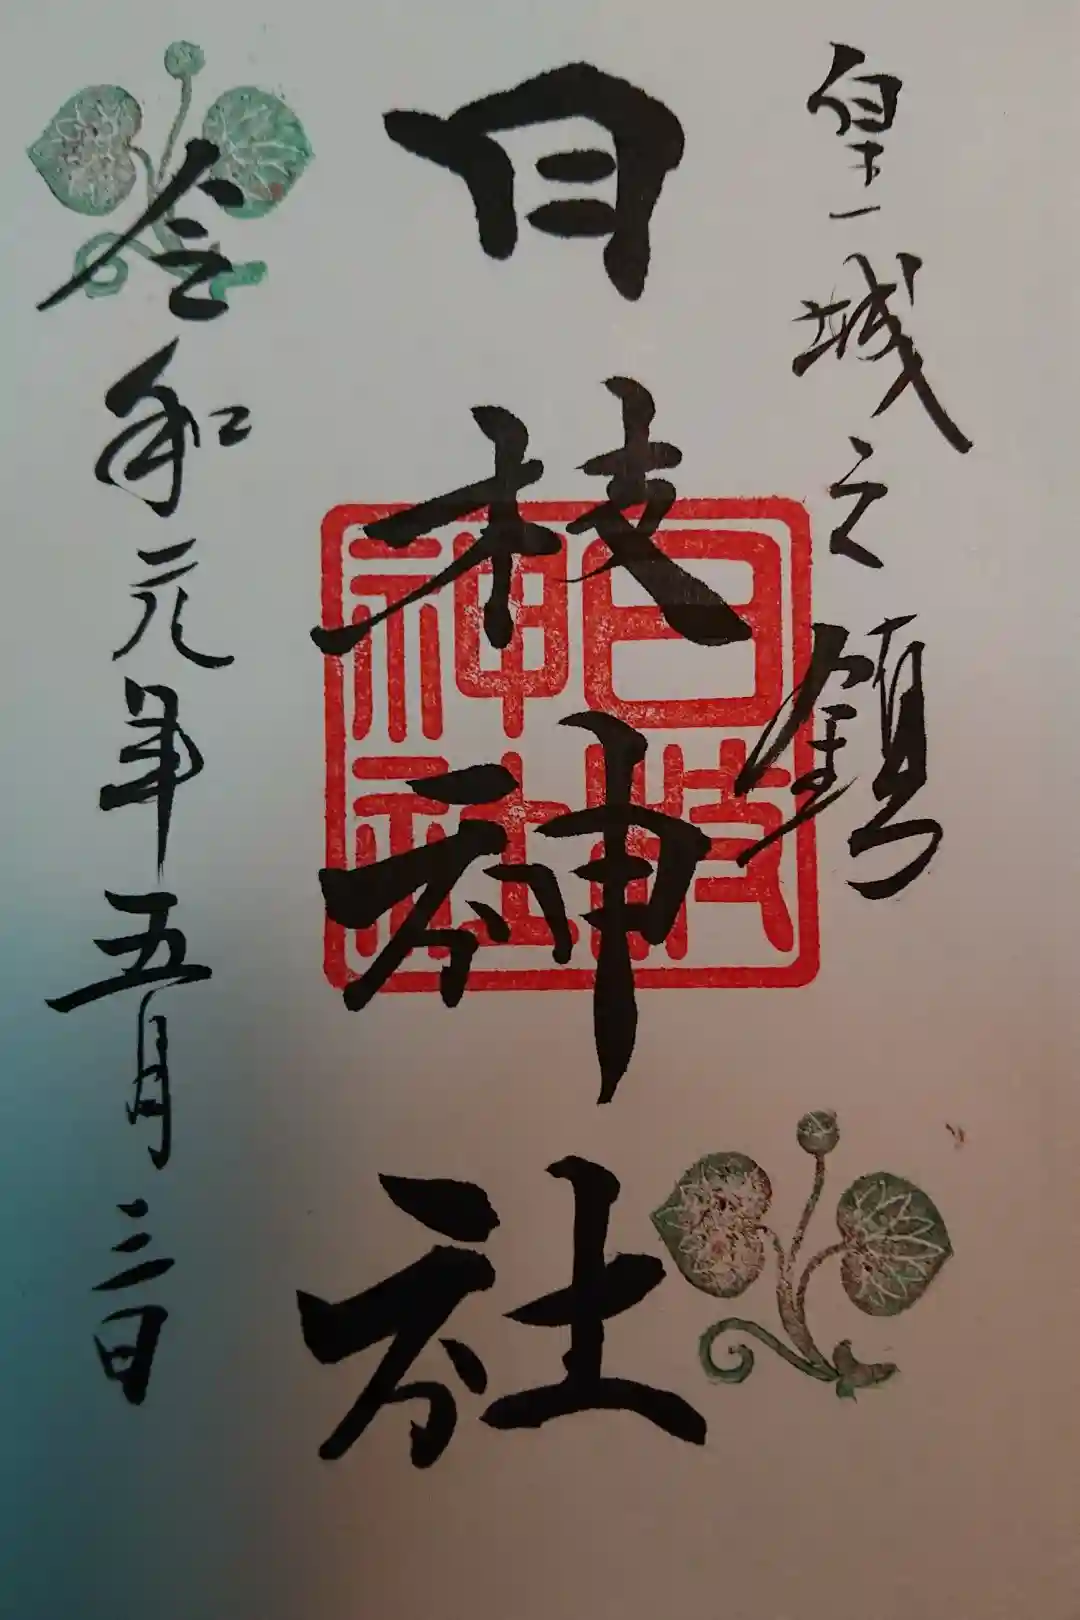 皇城之鎮
日枝神社
日枝
神社
令和元年五月三日